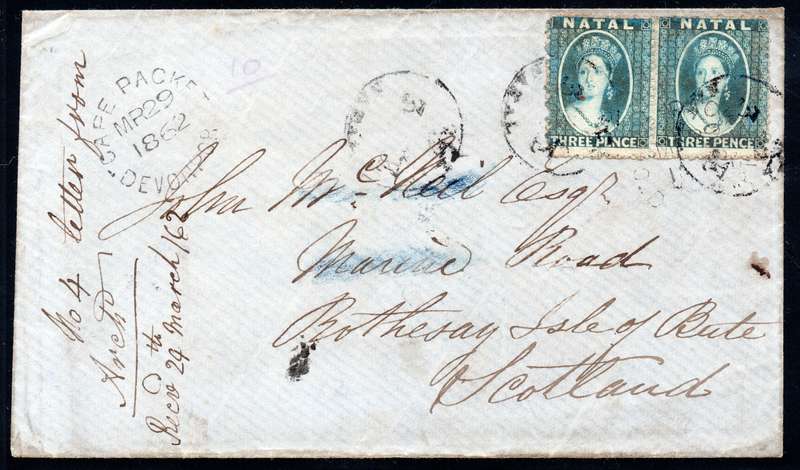 NATAL
THREE PENCE
NATAL
THREE PENCE
CAPE PACKET
MR 29
1862
DEVONPORT
10
John McNeil Esqr
Marine Road
Bothesay Isle of Bute
Scotland
No 4 letter from
Archd
Recd 29th March / 62